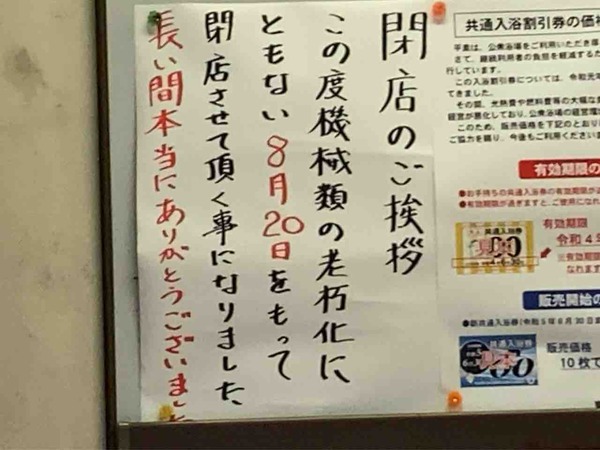 閉店のご挨拶
この度機械類の老朽化に
ともない8月20日をもって
閉店させて頂く事になりました
長い間本当にありがとうございました
共通入浴割引券の価
平素は、公衆浴場をご利用いただき厚
さて、継続利用者の負担を軽減するた
行しています。
この入浴割引券については、令和元年
てきました。
その間、光熱費や燃料費等の大幅な
経営が悪化しており、公衆浴場の経営環
このため、販売価格を下記のとおり
ご協力を賜り、今後もご利用ください
有効期限の
●お手持ちの共通入浴券の有効期間が
●有効期限が過ぎますと、ご使用になれ
共通入浴券
見本
有効期限
令和4年
※有効期限
なれます
販売開始の
●新共通入浴券(令和5年6月30日ま
見本
販売価格
10枚で